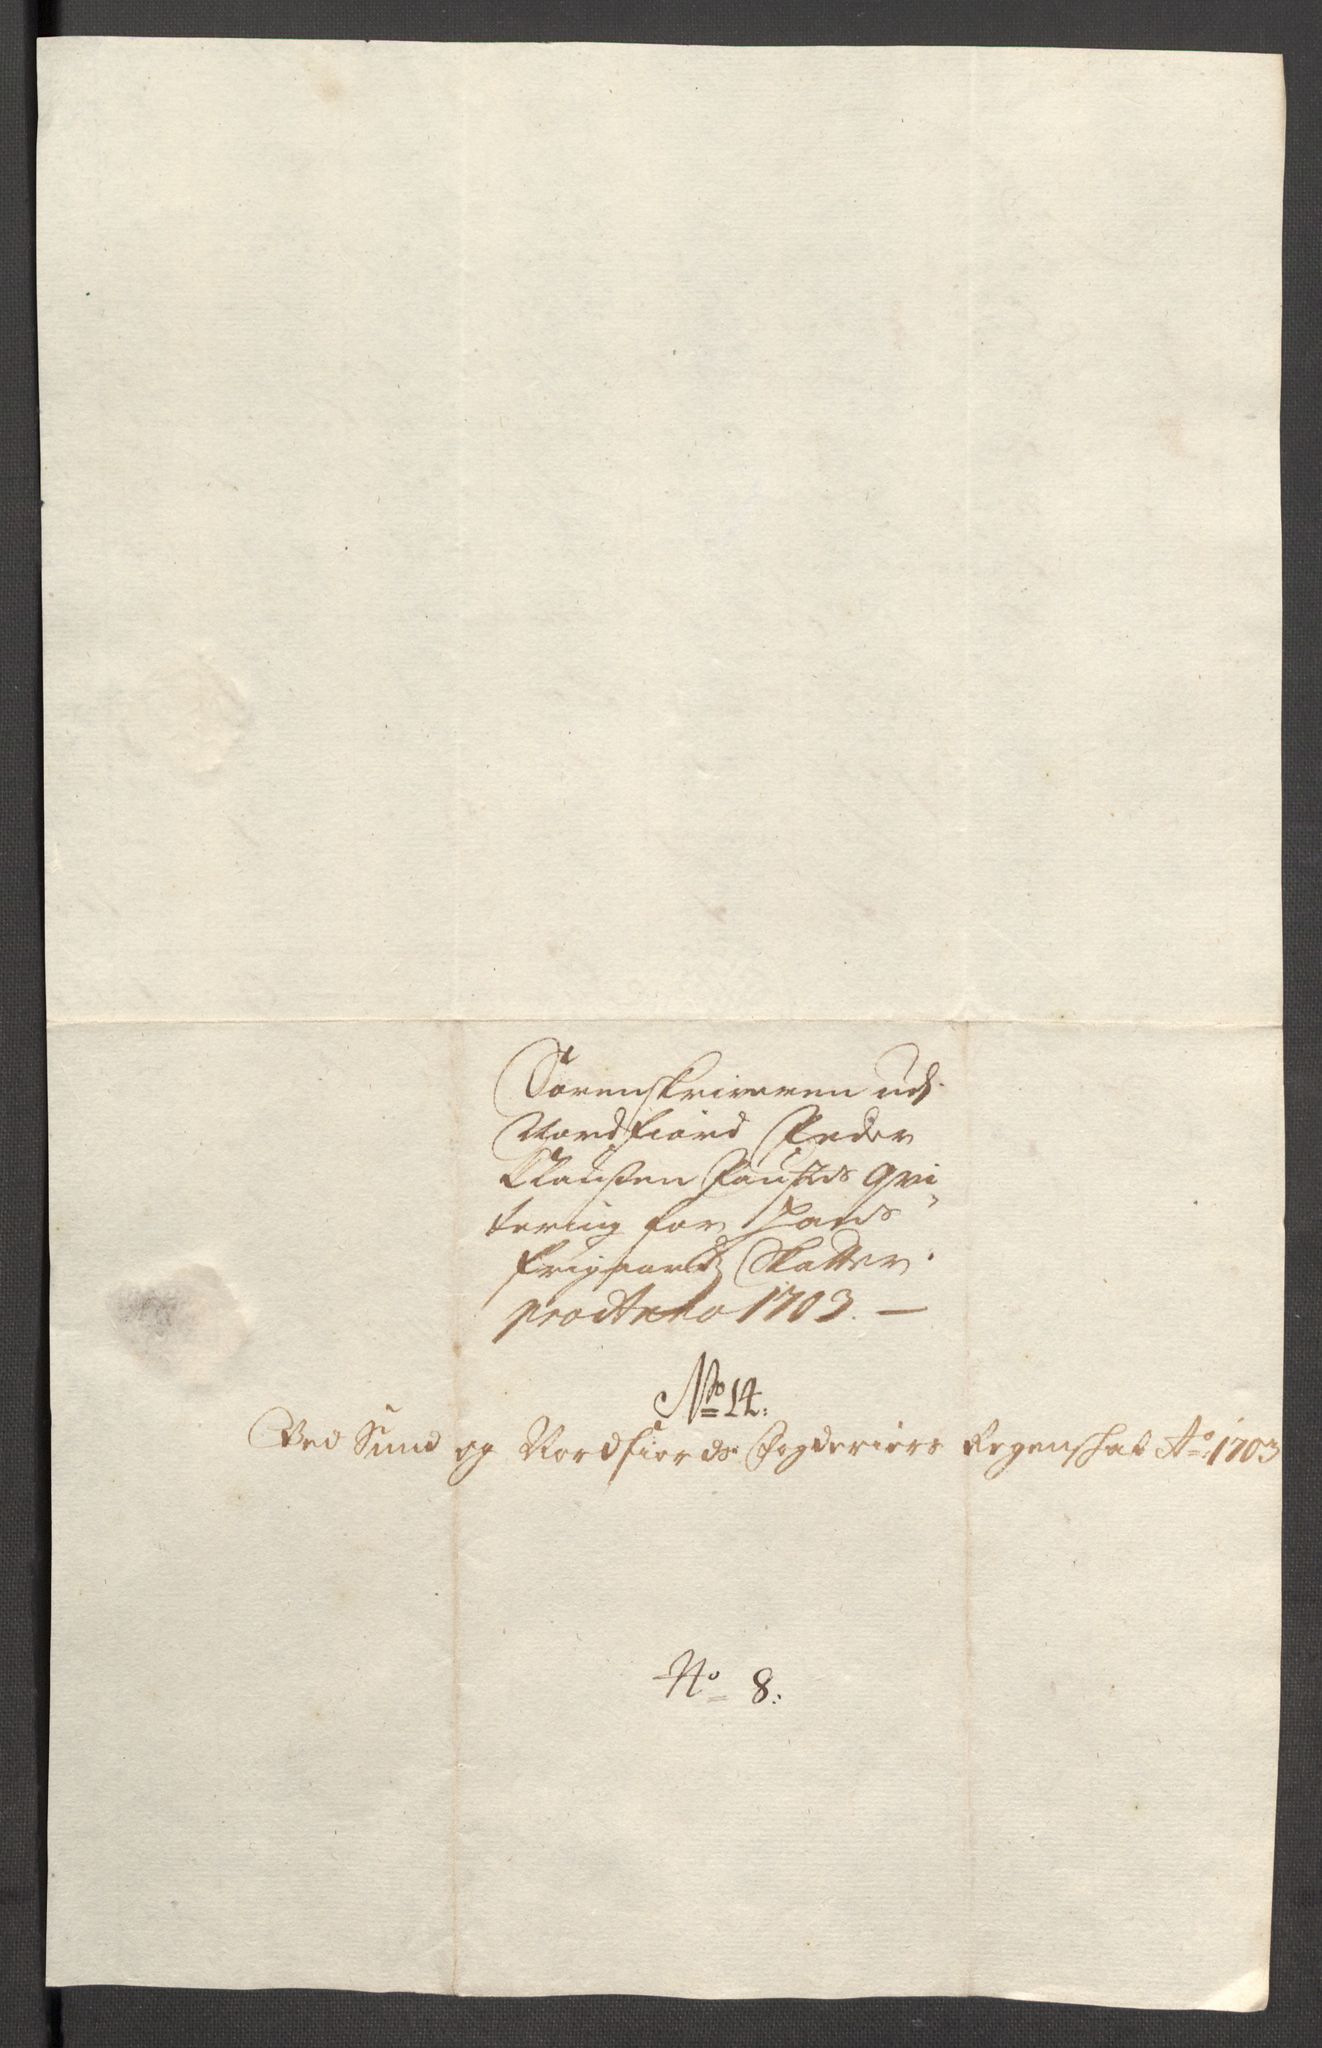 Sorenskriveren udj
Nordfiord Peder
Claussen Fausts Qvi
tering for hans
frigaards Skatter.
pro Anno 1703. —
No 14.
Ved Sund og Nordfiords Fogderiers Regenskab Ao: 1703
No 8: